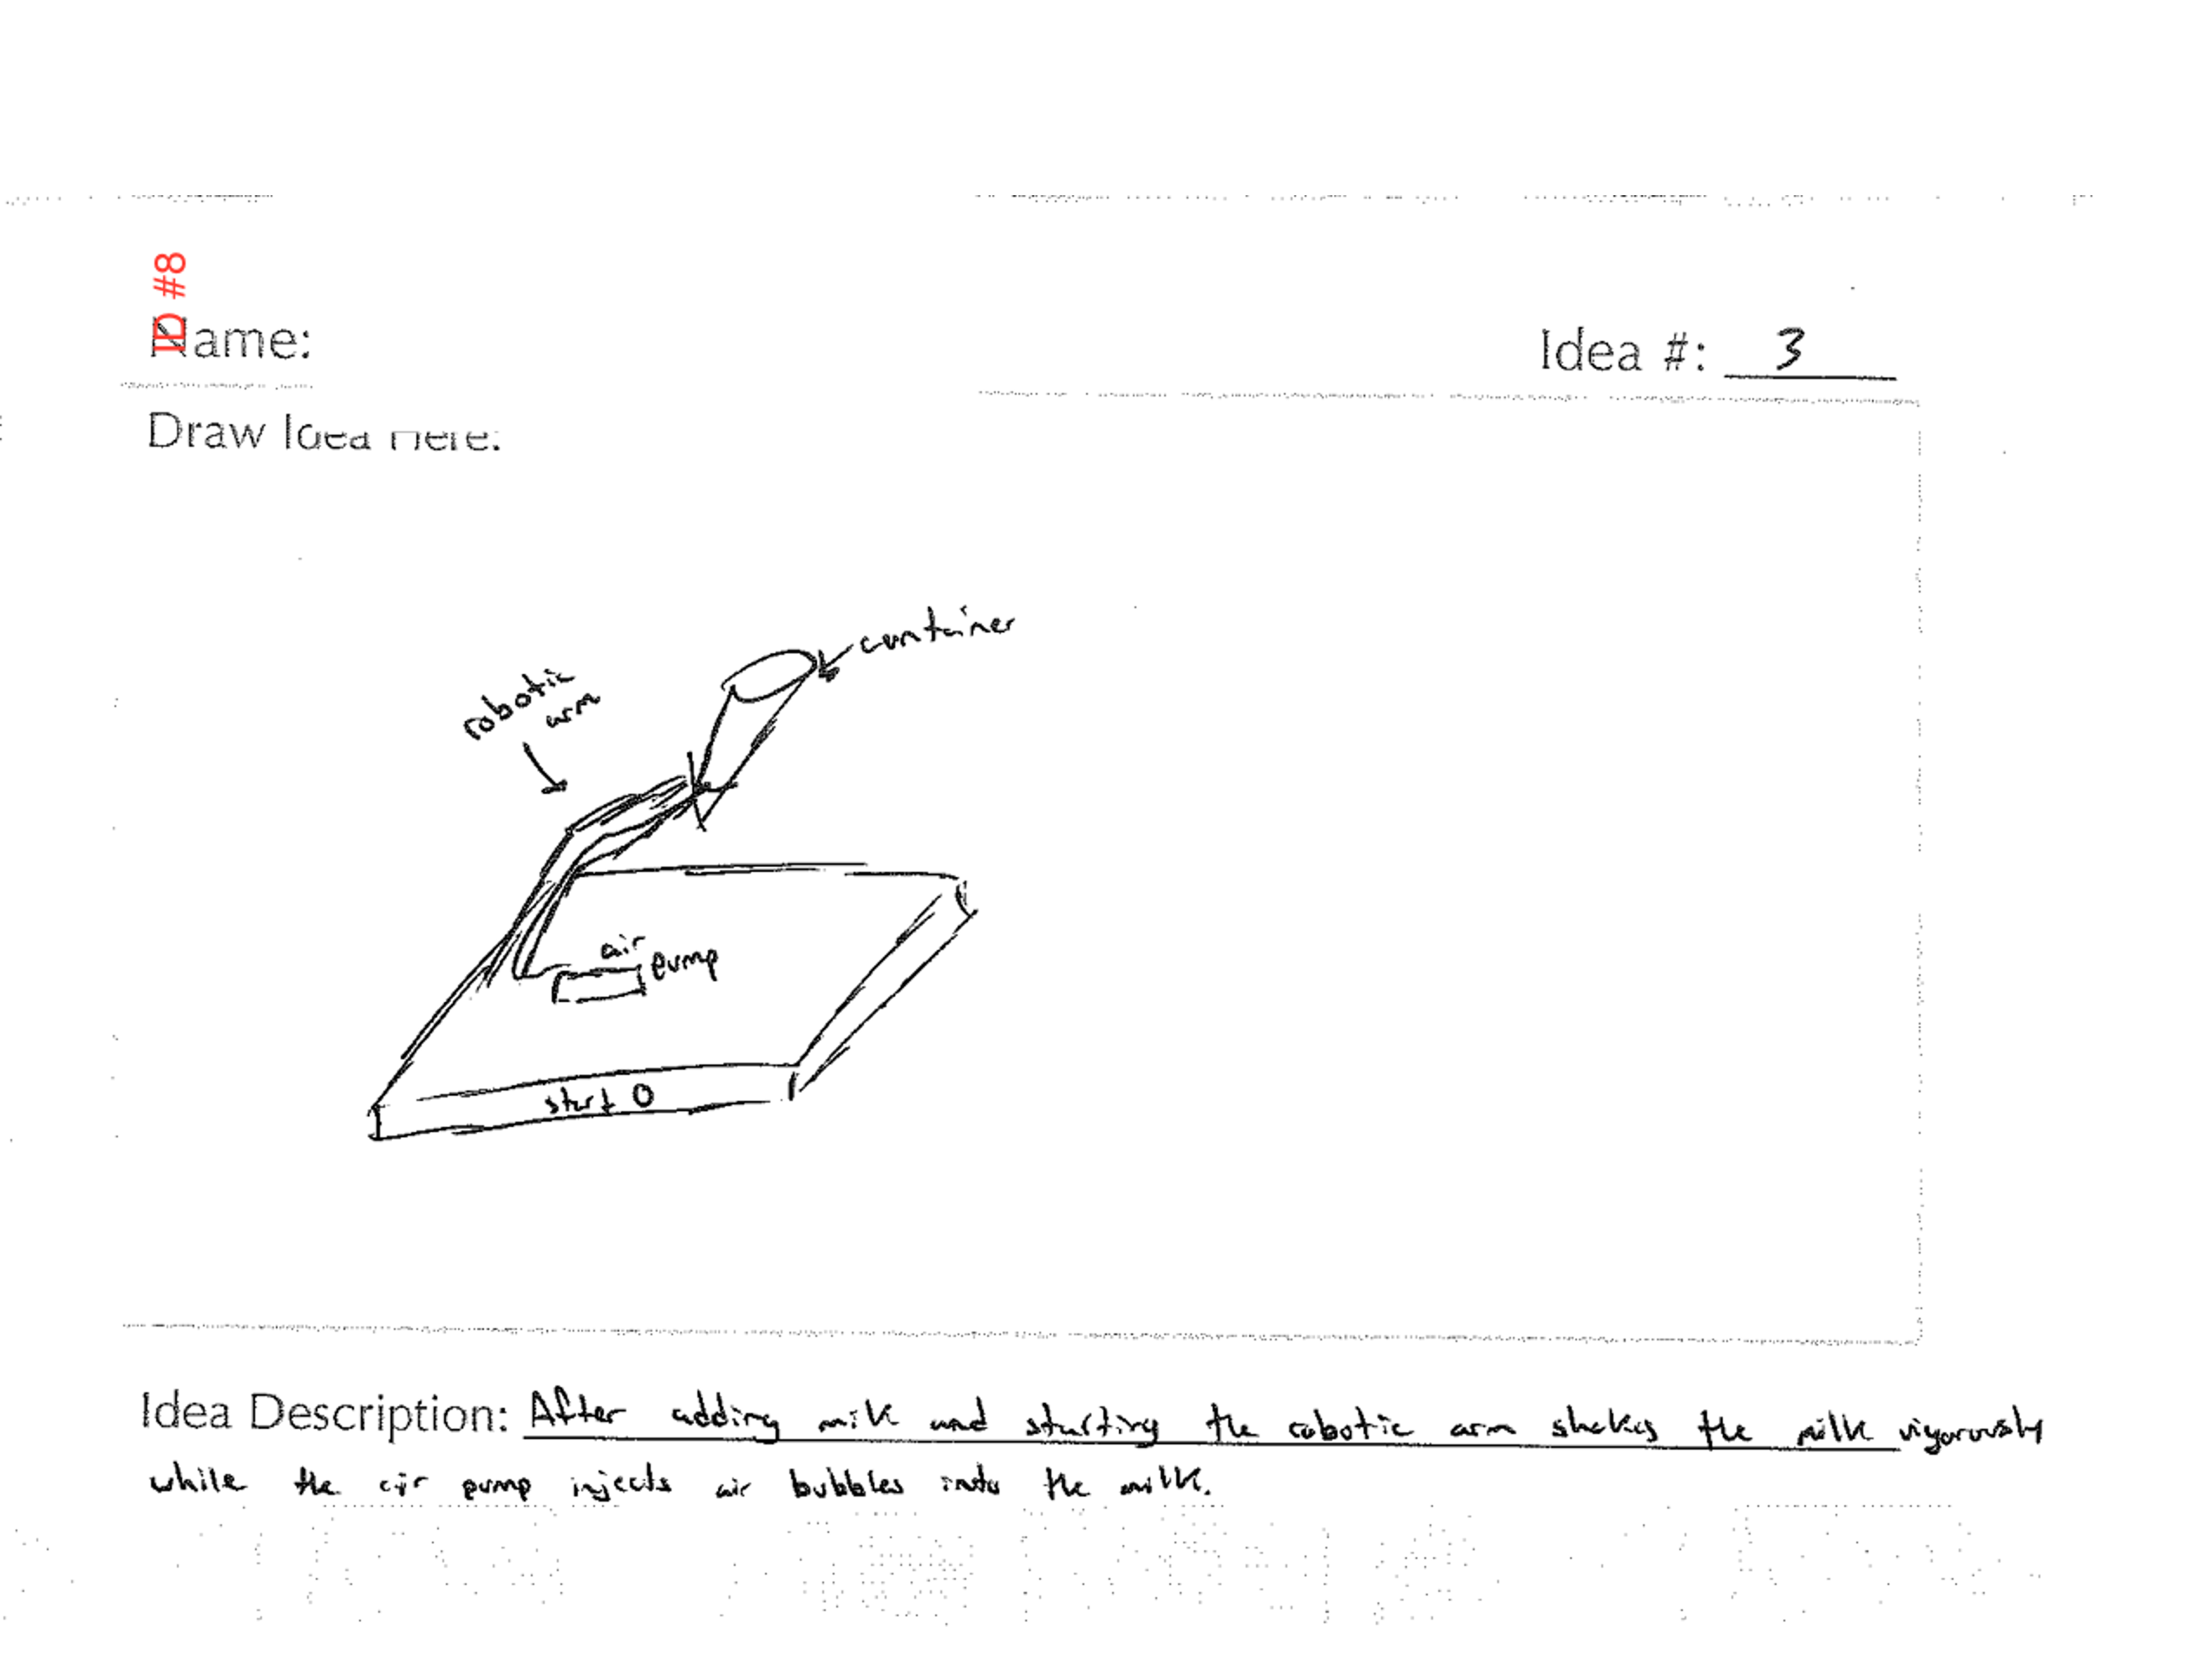 ID #8
Name:
Idea #: 3
Draw Idea Here:
container
robotic
arm
air
pump
start
Idea Description: After adding milk and starting the robotic arm shakes the milk vigorously
while the air pump injects air bubbles into the milk.